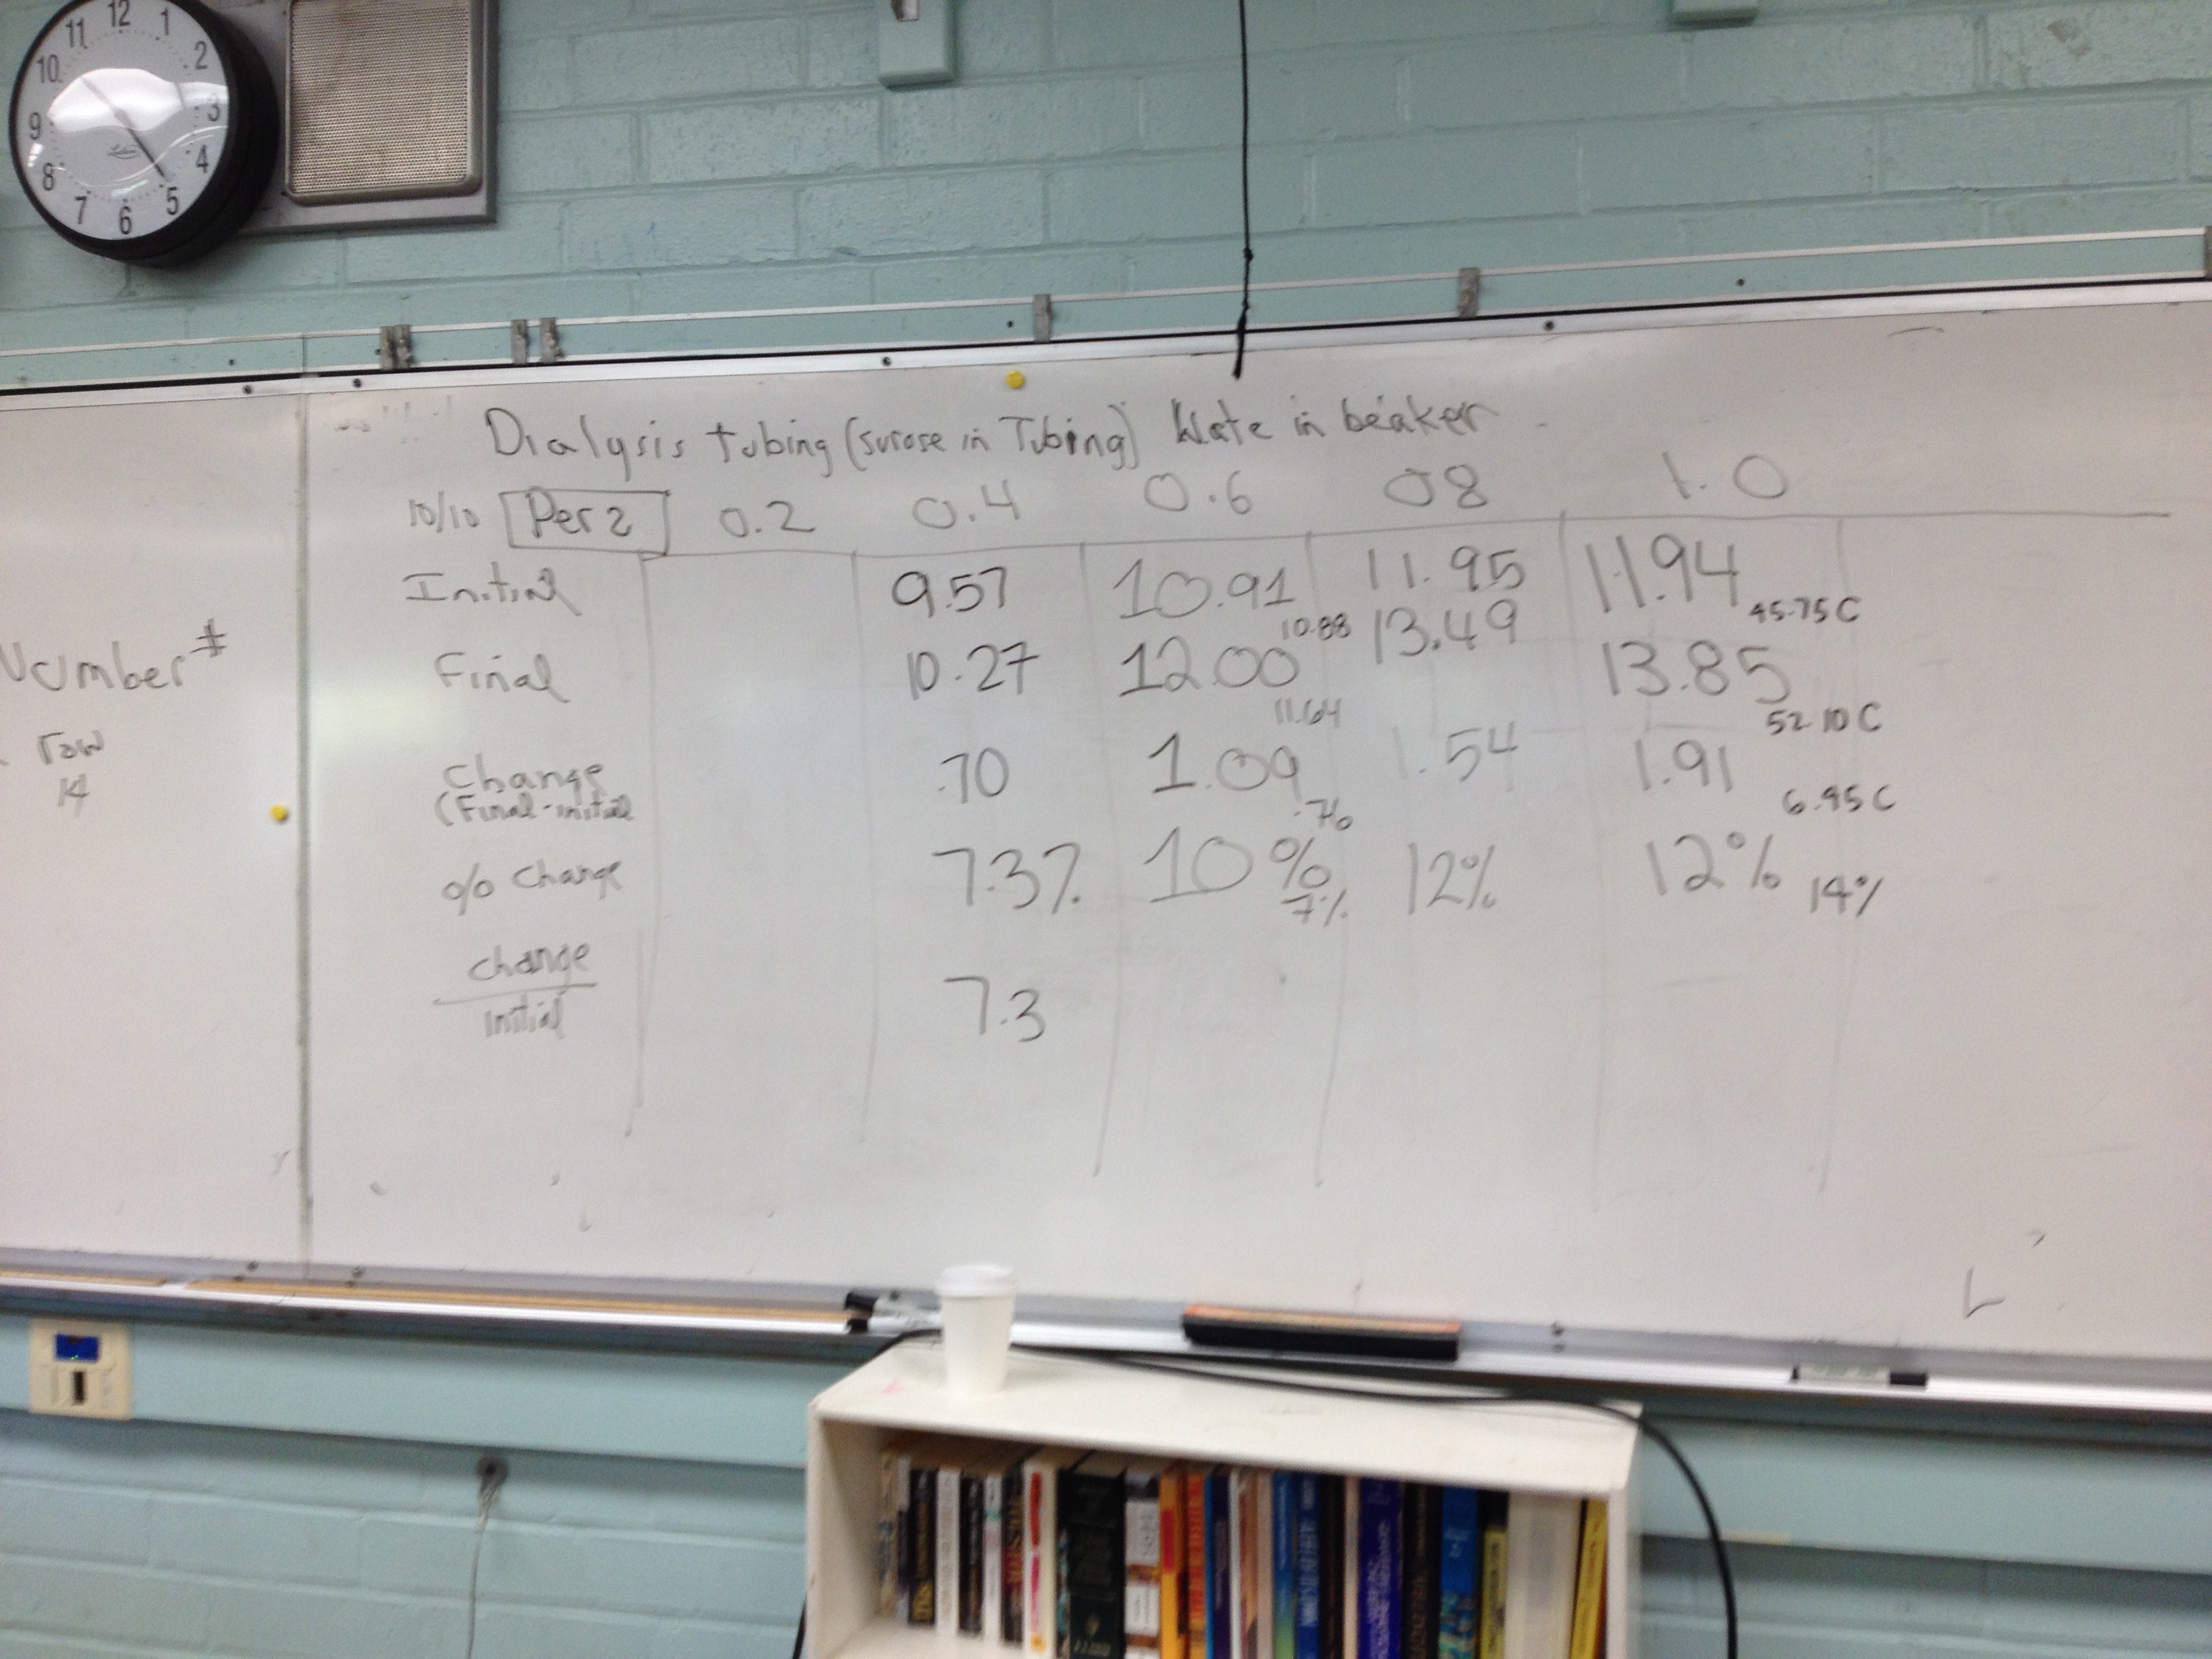 12
11 1
10 2
9 3
8 4
7 5
6
Dialysis tubing (surose in Tubing) Wate in beaker
10/10 Per 2 0.2 0.4 0.6 08 1.0
Initial 9.57 10.91 11.95 11.94
10.88 45.75 C
Final 10.27 12.00 13.49 13.85
11.64 52.10 C
Change .70 1.09 1.54 1.91
(Final-initial .76 6.95 C
% Change 7.3% 10% 12% 12%
7% 14%
change 7.3
initial
Number #
row
14